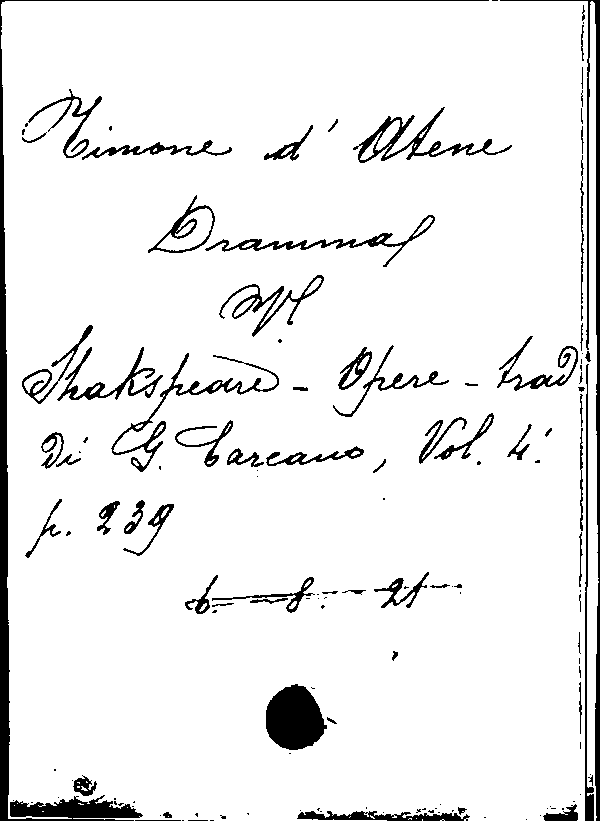 Timone d' Atene
Dramma
Shakspeare - Opere - trad.
di G. Carcano, Vol. 4.
p. 239
6. 8. 21